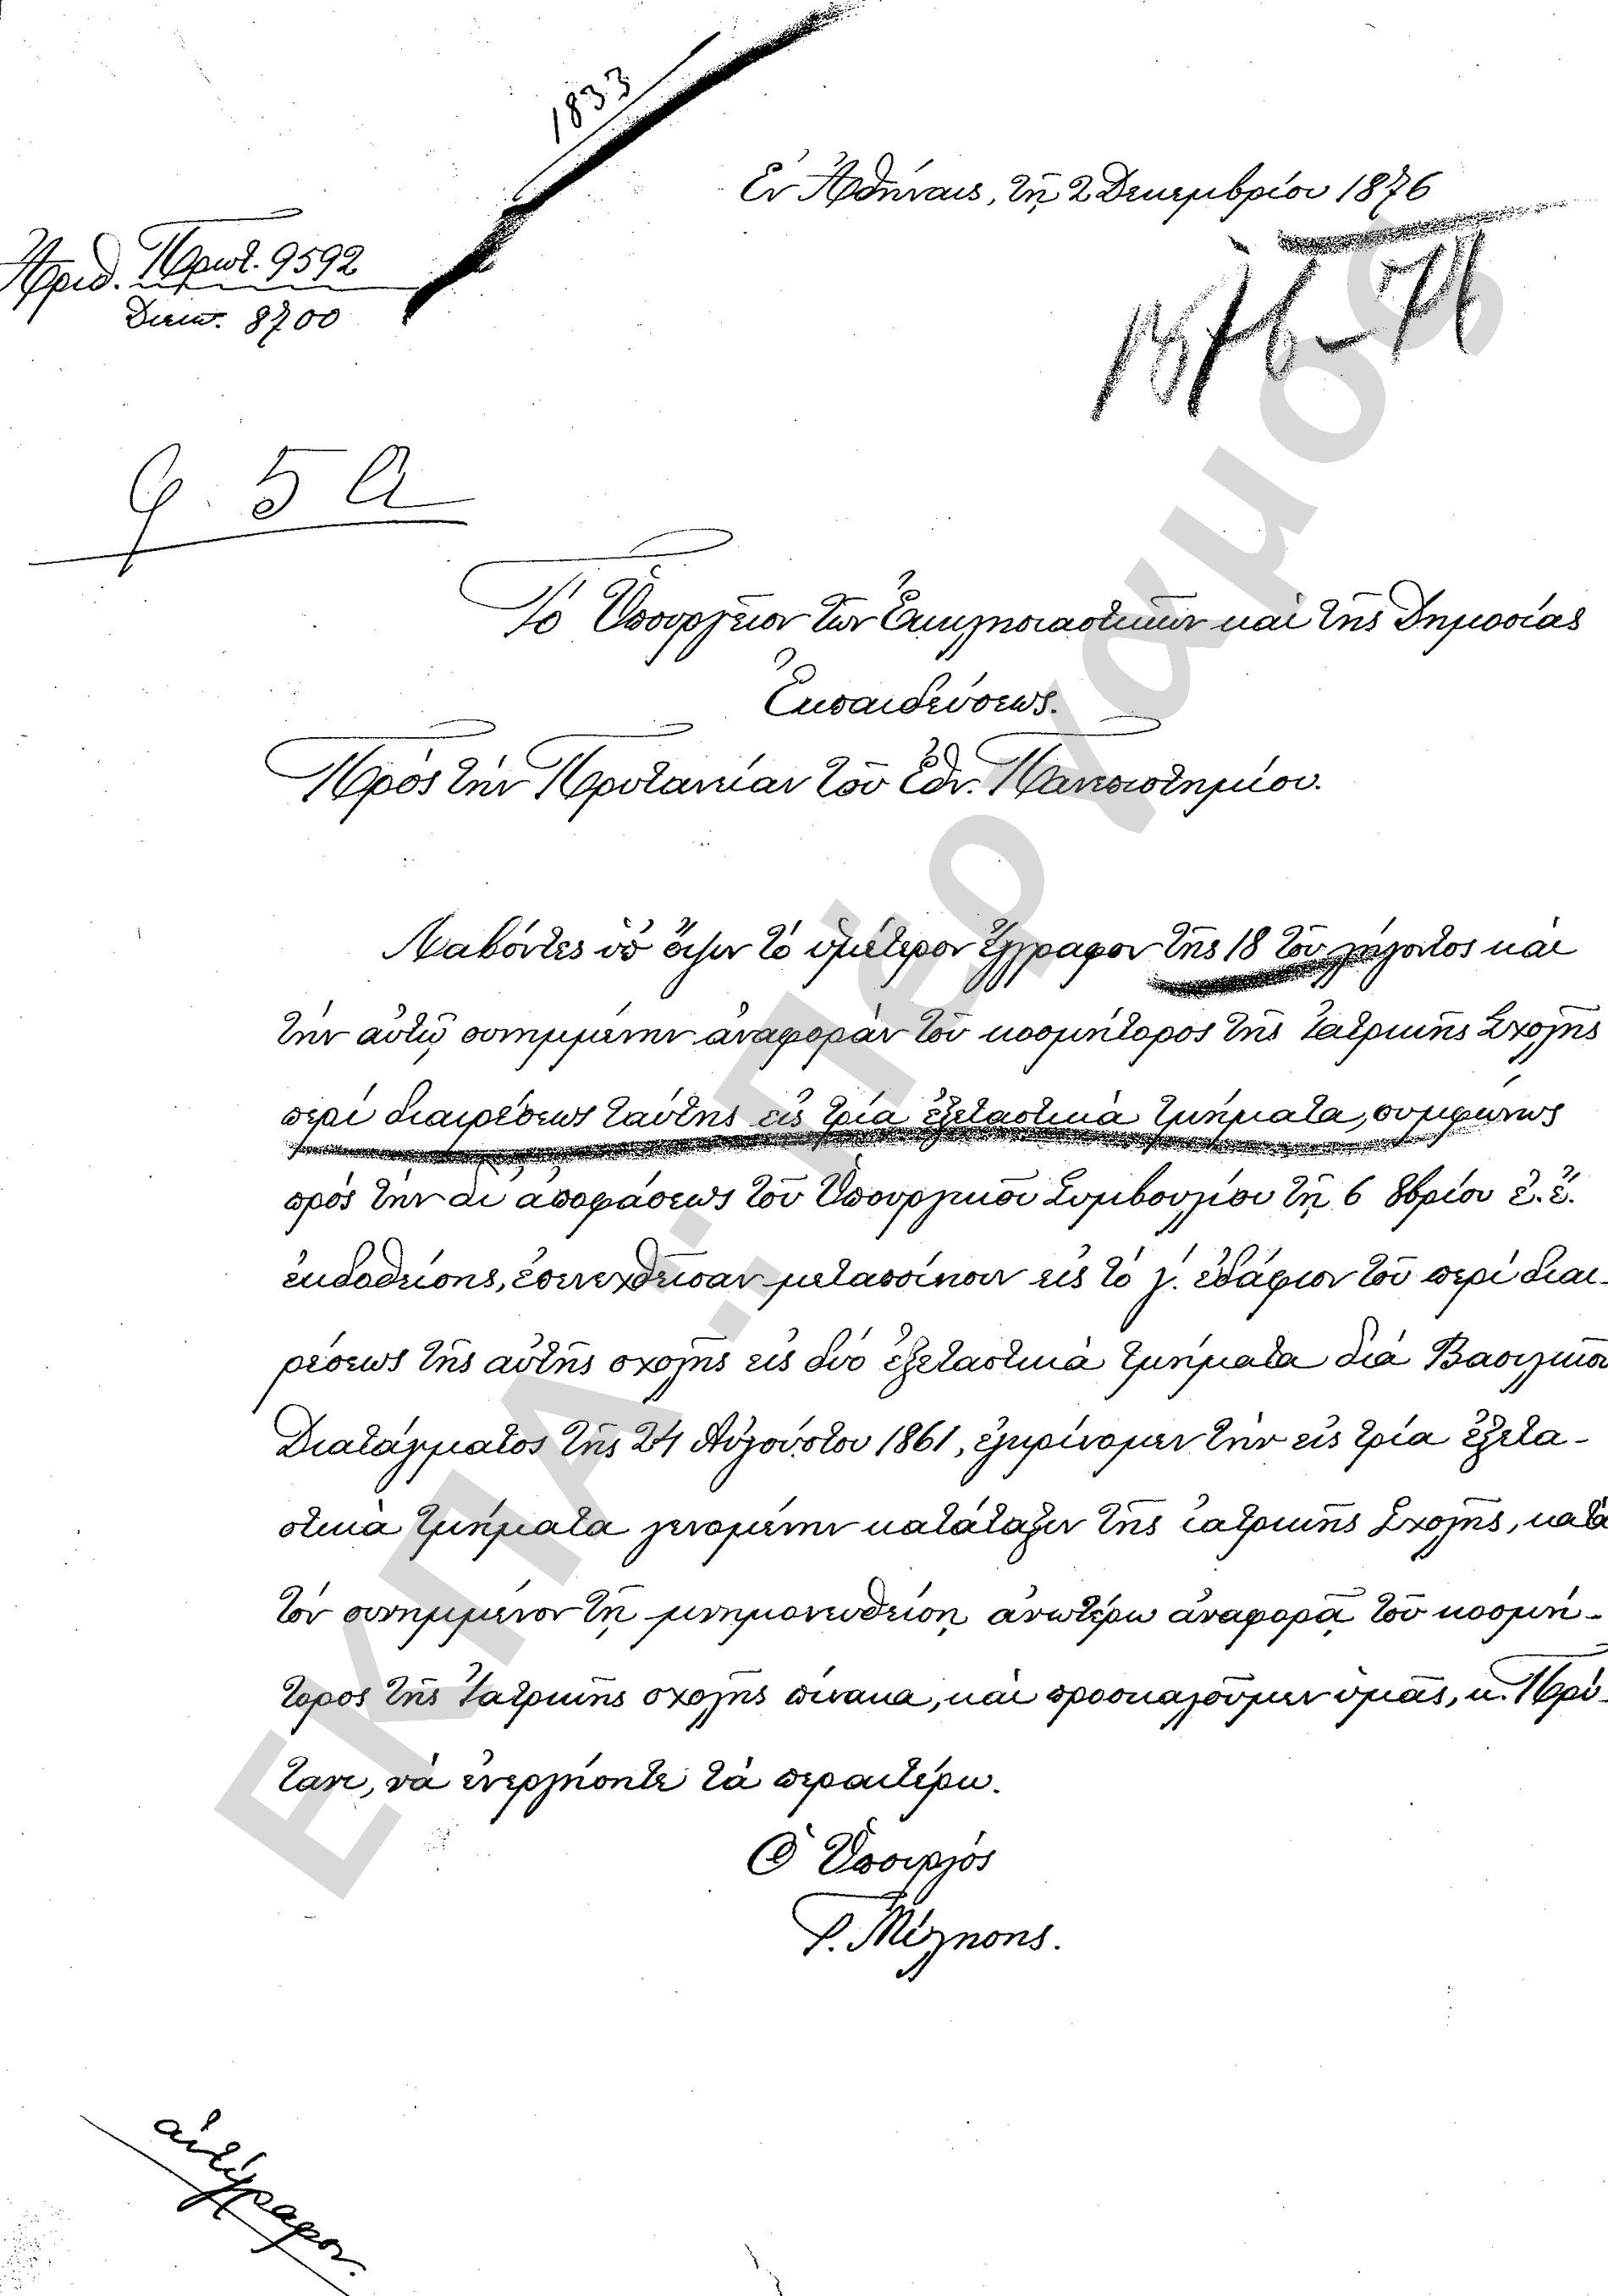 1833
Ἐν Ἀθήναις, τῇ 2 Δεκεμβρίου 1876
Ἀριθ. Πρωτ. 9592
Διεκπ. 8700
1876-77
φ. 5 α
Τὸ Ὑπουργεῖον τῶν Ἐκκλησιαστικῶν καὶ τῆς Δημοσίας
Ἐκπαιδεύσεως.
Πρὸς τὴν Πρυτανείαν τοῦ Ἐθν. Πανεπιστημίου.
Λαβόντες ὑπ' ὄψιν τὸ ὑμέτερον ἔγγραφον τῆς 18 τοῦ λήγοντος καὶ
τὴν αὐτῷ συνημμένην ἀναφορὰν τοῦ κοσμήτορος τῆς Ἰατρικῆς Σχολῆς
περὶ διαιρέσεως ταύτης εἰς τρία ἐξεταστικὰ τμήματα, συμφώνως
πρὸς τὴν δι' ἀποφάσεως τοῦ Ὑπουργικοῦ Συμβουλίου τῇ 6 8βρίου ἐ.ἔ.
ἐκδοθείσης, ἐπενεχθεῖσαν μεταποίησιν εἰς τὸ γ'. ἐδάφιον τοῦ περὶ διαι-
ρέσεως τῆς αὐτῆς σχολῆς εἰς δύο ἐξεταστικὰ τμήματα διὰ Βασιλικοῦ
Διατάγματος τῆς 24 Αὐγούστου 1861, ἐγκρίνομεν τὴν εἰς τρία ἐξετα-
στικὰ τμήματα γενομένην κατάταξιν τῆς ἰατρικῆς Σχολῆς, κατὰ
τὸν συνημμένον τῇ μνημονευθείσῃ ἀνωτέρω ἀναφορᾷ τοῦ κοσμή-
τορος τῆς Ἰατρικῆς σχολῆς πίνακα, καὶ προσκαλοῦμεν ὑμᾶς, κ. Πρύ-
τανι, νὰ ἐνεργήσητε τὰ περαιτέρω.
Ὁ Ὑπουργός
Γ. Μίλησης.
ἀντίγραφον.
ΕΚΠΑ: Πέργαμος